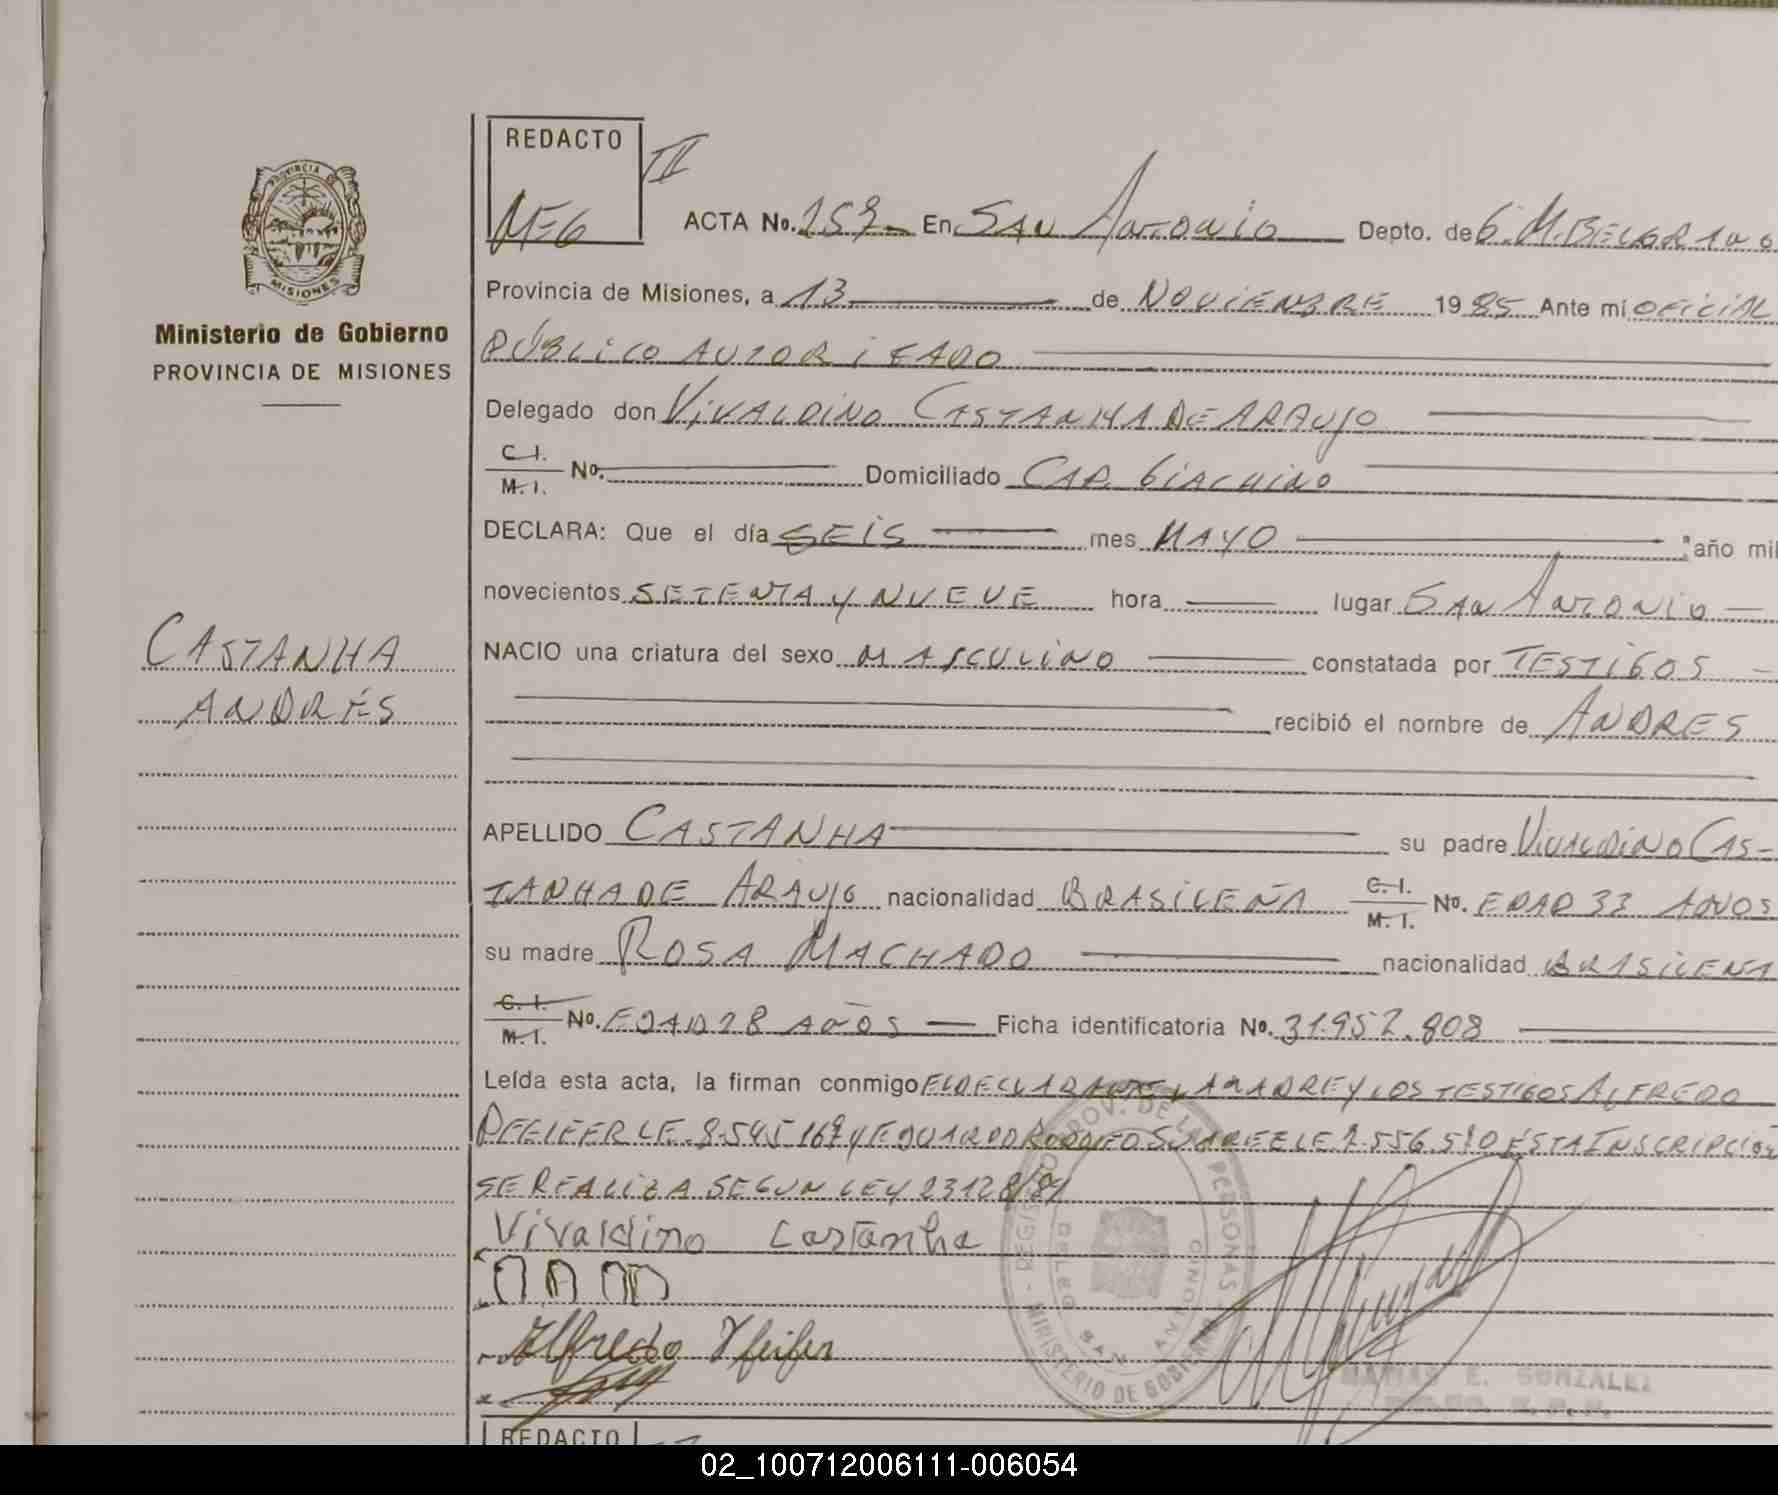 REDACTO
II
MEG
ACTA No. 157 En SAN ANTONIO Depto. de G. M. BELGRANO
Provincia de Misiones, a 13 de NOVIEMBRE 1985 Ante mi OFICIAL
PÚBLICO AUTORIZADO
PROVINCIA DE
MISIONES
Ministerio de Gobierno
PROVINCIA DE MISIONES
Delegado don VIVALDINO CASTANHA DE ARAUJO
C. I.
M. I. No. Domiciliado CAP. GIACHINO
DECLARA: Que el día SEIS mes MAYO año mil
novecientos SETENTA Y NUEVE hora lugar SAN ANTONIO
CASTANHA
ANDRÉS
NACIO una criatura del sexo MASCULINO constatada por TESTIGOS
recibió el nombre de ANDRES
APELLIDO CASTANHA su padre VIVALDINO CAS-
TANHA DE ARAUJO nacionalidad BRASILEÑA C. I. M. I. No. EDAD 33 AÑOS
su madre ROSA MACHADO nacionalidad BRASILEÑA
C. I.
M. I. No. EDAD 28 AÑOS Ficha identificatoria No. 31.957.808
Leída esta acta, la firman conmigo EL DECLARANTE, LA MADRE Y LOS TESTIGOS ALFREDO
PFEIFER LE. 8.545.167 Y EDUARDO RODOLFO SUAREZ LE 7.556.510 ESTA INSCRIPCIÓN
SE REALIZA SEGUN LEY 23128/84
Vivaldino Castanha
Alfredo Pfeifer
REGISTRO PROV. DE LAS PERSONAS - MINISTERIO DE GOBIERNO
DELEG. SAN ANTONIO
MATIAS E. GONZALEZ
REDACTO
02_100712006111-006054